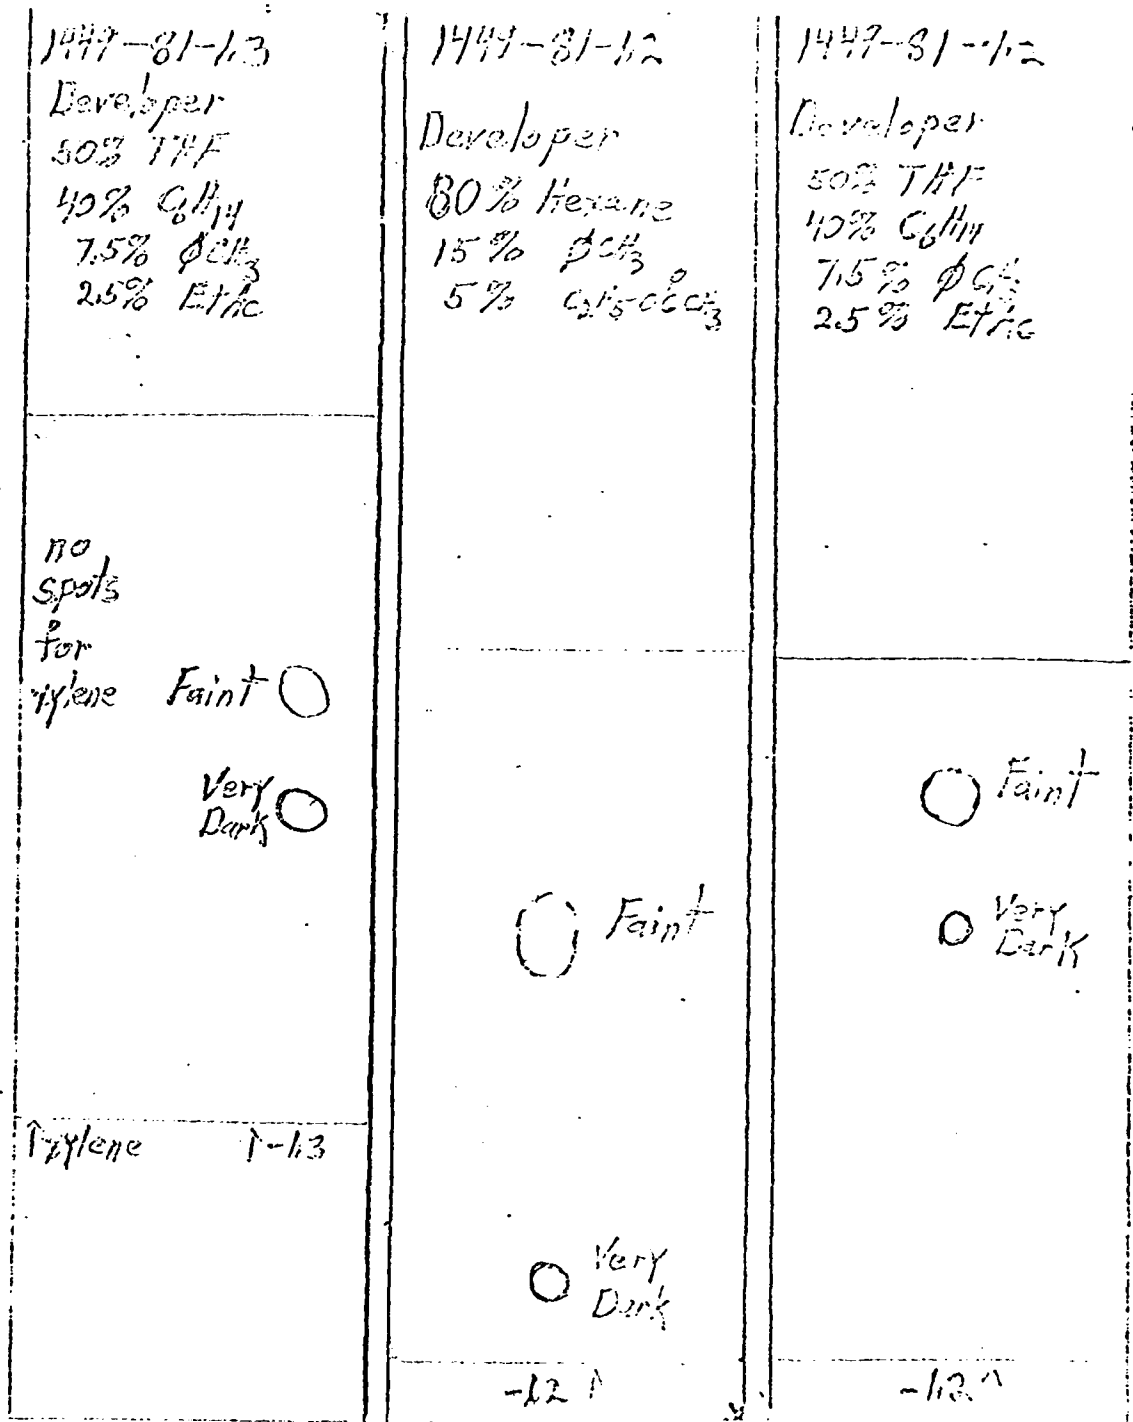 1449-81-1.3
Developer
50% THF
40% C6H14
7.5% φCH3
2.5% EtAc
no
spots
for
xylene
Faint
Very
Dark
↑xylene ↑-1.3
1449-81-1.2
Developer
80% Hexane
15% φCH3
5% C2H5OCCH3
O
Faint
Very
Dark
-1.2 ↑
1449-81-1.2
Developer
50% THF
40% C6H14
7.5% φCH3
2.5% EtAc
Faint
Very
Dark
-1.2 ↑